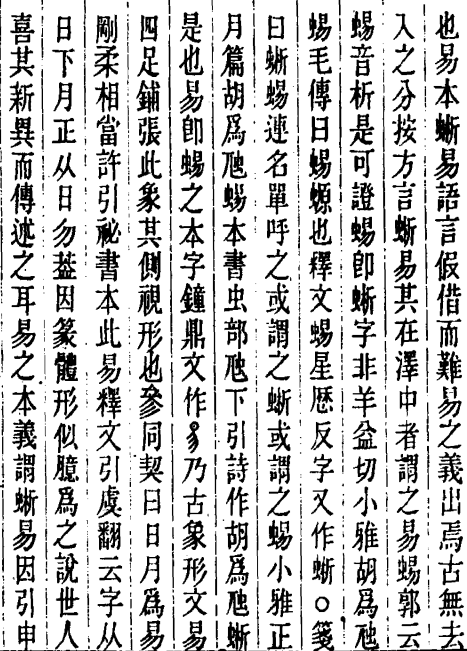 也易本蜥易語言假借而難易之義出焉古無去
入之分按方言蜥易其在澤中者謂之易蜴郭云
蜴音析是可證蜴卽蜥字非羊益切小雅胡爲虺
蜴毛傳曰蜴螈也釋文蜴星歷反字又作蜥○箋
曰蜥蜴連名單呼之或謂之蜥或謂之蜴小雅正
月篇胡爲虺蜴本書虫部虺下引詩作胡爲虺蜥
是也易卽蜴之本字鐘鼎文作乃古象形文易
四足鋪張此象其側視形也參同契曰日月爲易
剛柔相當許引祕書本此易釋文引虞翻云字从
日下月正从日勿葢因篆體形似臆爲之說世人
喜其新異而傳述之耳易之本義謂蜥易因引申